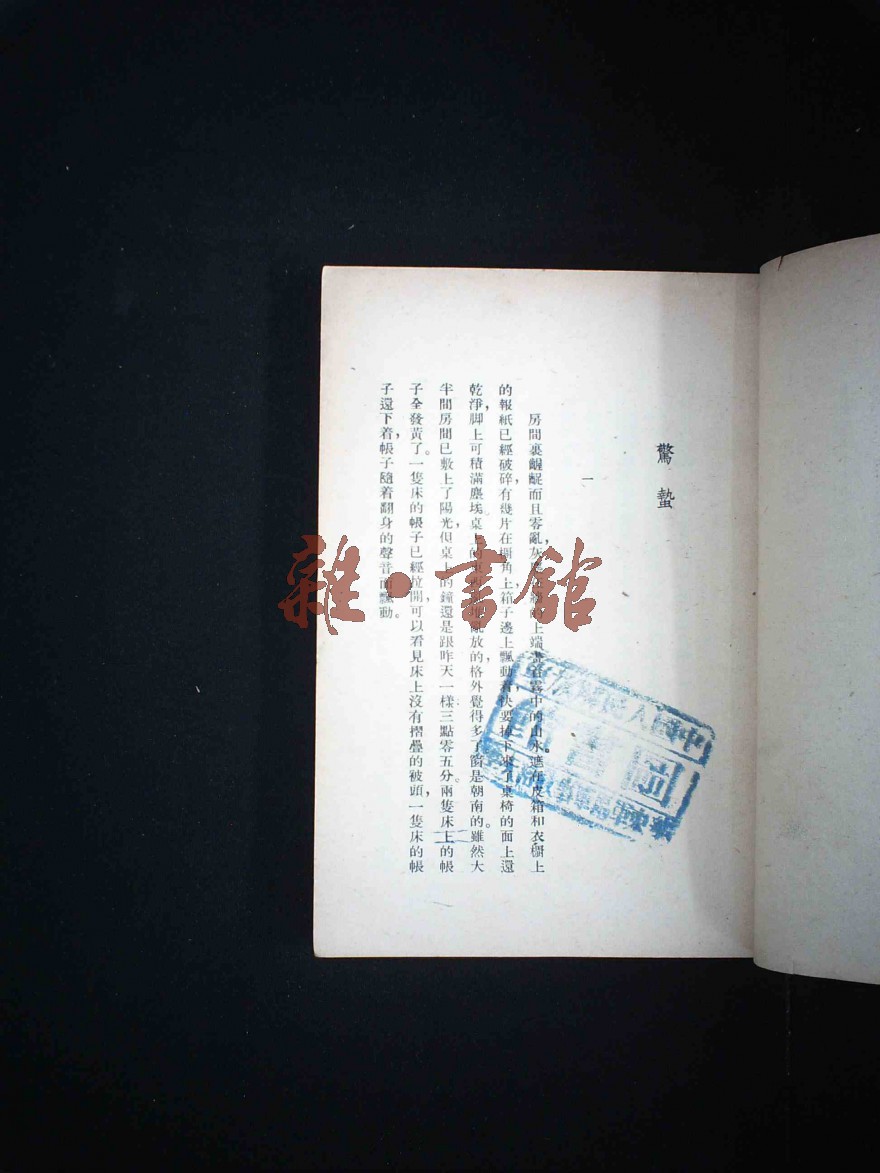 驚蟄
一
房間裏齷齪而且零亂，灰上端霧中的山水。遮在皮箱和衣櫥上
的報紙已經破碎，有幾片在櫥角上箱子邊上飄動着，快要掉下來了。桌椅的面上還
乾淨，脚上可積滿塵埃。桌上的亂放的，格外覺得多了。窗是朝南的。雖然大
半間房間已敷上了陽光，但桌的鐘還是跟昨天一樣三點零五分。兩隻床上的帳
子全發黃了。一隻床的帳子已經拉開，可以看見床上沒有摺疊的被頭，一隻床的帳
子還下着，帳子隨着翻身的聲音而飄動。
雜·書館
中國人民
圖書